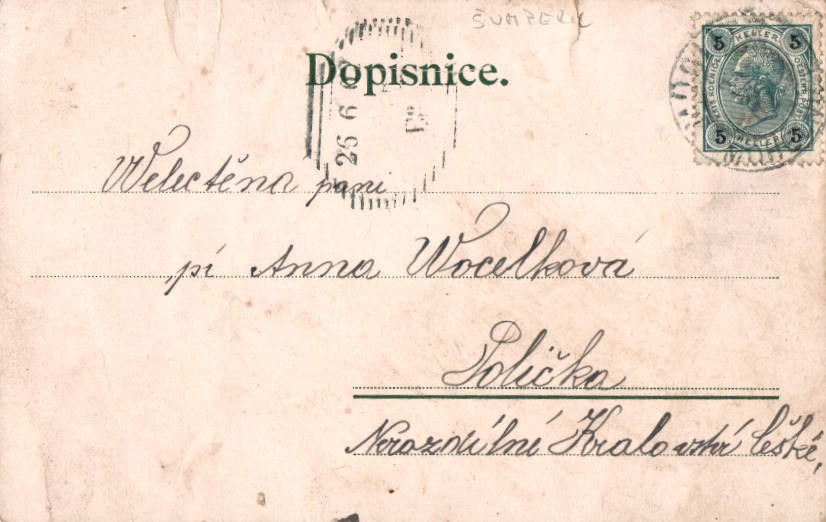 ŠUMPERK
Dopisnice.
HELLER
5 5
5 5
HELLER
26 6
Welectěna pani
pí Anna Wocelková
Polička
Nerozdílné Kralovství České.